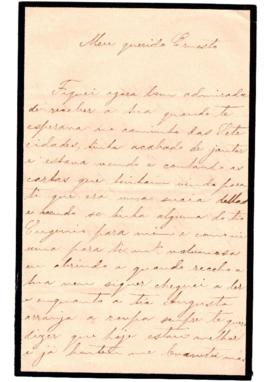 Meu querido Ernesto
Fiquei agora bem admirada
de receber a tua quando te
esperava no caminho das Fele
cidades, tinha acabado de jantar
e estava vendo e contando as
cartas que tinham vindo para
ti que era uma sucia dellas
e vendo se tinha alguma do tio
Eugenio para mim e
uma para ti mto volumosa
abrindo a quando recebo a
tua nem siquer cheguei a ler
a enquanto a tia Augusta
arranja a roupa sempre te quero
dizer que hoje estou melhor
e já hontem me